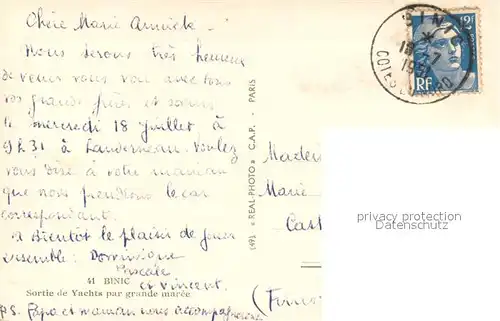 Chère Marie Annick.
Nous serons très heureux
de venir vous voir avec tous
vos grands frères et soeurs
le mercredi 18 juillet à
9h31 à Landerneau. Voulez
vous dire à votre maman
que nous prendrons le car
correspondant.
A Bientôt le plaisir de jouer
ensemble: Dominique
Pascale
et Vincent.
41 BINIC
Sortie de Yachts par grande marée
P.S. Papa et maman nous accompagneront
(49) « REAL-PHOTO » C.A.P. - PARIS
BINIC
18-7
COTES DU NORD
12F
RF
Madem
Marie
Cast
(Finis
privacy protection
Datenschutz